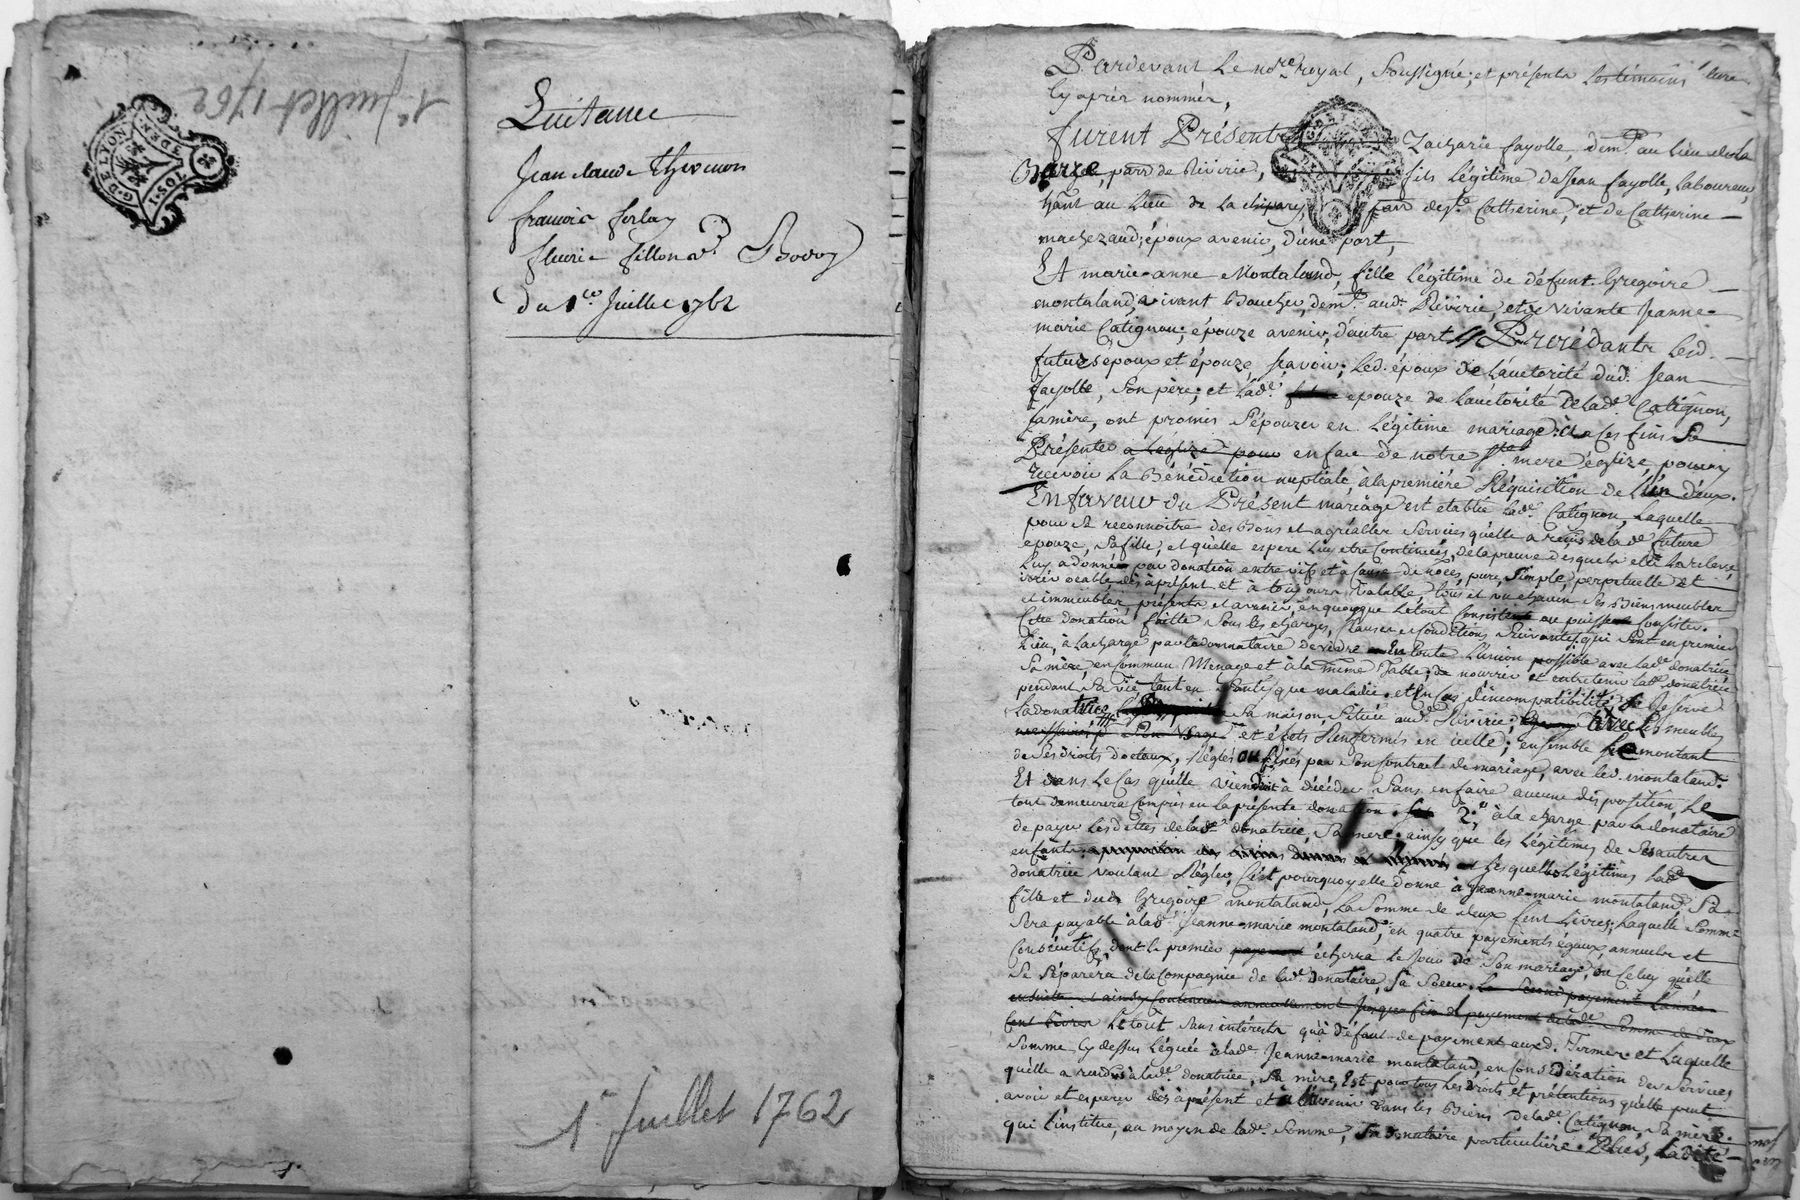 1er Juillet 1762
G. DE LYON
Quitance
Jean Claude Thevenon
francois
fleurie fillon
Du 1er Juillet 1762
1er Juillet 1762
Pardevant Le nore royal, Soussigné, et présents les témoins
Cy après nommés,
furent Présents Zacharie fayolle, demt. au Lieu de La
parr de Riverie, fils Légitime de Jean fayolle, Laboureur,
hant au Lieu de La parr de Ste. Catherine, et de Catherine
machezaud, époux avenir, d'une part,
Et marie-anne Montaland, fille légitime de défunt Gregoire
montaland, vivant Boucher, demt. aud. Riverie, et vivante Jeanne
marie Catignon, épouze avenir, d'autre part // Procédants Lesd.
futurs époux et épouze, Scavoir; Led. époux de L'auctorité dud. Jean
fayolle, Son père; et Lade. épouze de L'auctorité de Lade. Catignon,
Samère, ont promis S'épouzer en Légitime mariage; et a ces fins Se
Présenter a Leglize pour en face de notre Ste mere église pour y
recevoir La Bénédiction nuptiale, à la première Réquisition de L'un d'eux.
En faveur du Présent mariage est établie Lade. Catignon, Laquelle
pour et reconnoitre des Bons et agréables Services qu'elle a reçus de la de. future
épouze, Sa fille, et qu'elle espere Luy etre Continués, de la preuve desquels elle La releve,
Luy a donné par donation entre vifs et à Cause de Noces, pure, Simple, perpetuelle et
irrévocable dès à présent et à toujours Valable, tous et un chacun Ses Biens meubles
et immeubles, présents et avenir, en quoy que Le tout Consiste ou puisse Consister.
Cette donation faitte Sous les charges, Clauses et Conditions Suivantes, qui Sont en premier
Lieu, à La charge par la donnataire de vivre en toute L'union possible avec lade. donatrice,
Sa mère, en Commun Menage et à la même Table, de nourrir et entretenir lade. donatrice
pendant Sa vie, tant en Santé, que maladie, et En Cas d'incompatibilité, Se Reserve
La donatrice Sa maison, Située aud. Riverie, avec Les meubles
et éfets Renfermés en icelle; ensemble Le montant
de Ses droits dotaux, Réglés ou fixés par Son Contract de mariage, avec led. montaland.
Et dans Le Cas qu'elle viendroit à décéder Sans en faire aucune disposition, Le
tout demeurera Compris en la présente donation. 2o., à la charge par la donataire
de payer Les dettes de lade. donatrice, Sa mere, ainsy que les légitimes de Ses autres
enfants Lesquelles Légitimes Lade.
donatrice voulant Régler, C'est pourquoy elle donne à Jeanne-marie montaland, Sa
fille et dud. Grégoire montaland, La Somme de deux Cent Livres, Laquelle Somme
Sera payable à lade. Jeanne-marie montaland, en quatre payements égaux, annuels et
Consécutifs, dont le premier écherra le Jour de Son mariage, ou Celuy qu'elle
Se Séparera de la Compagnie de lade. donataire, Sa Soeur. Le Second payement L'année
ensuite et ainsy Continuer annuellement Jusqua fin de payement de lade. Somme de deux
Cent Livres Le tout Sans intérests qu'à défaut de payement auxd. Termes et Laquelle
Somme Cy dessus Léguée à lade. Jeanne-marie montaland, en Considération des Services
qu'elle a rendus à lade. donatrice, Sa mère, Est pour tous Les droits et prétentions qu'elle peut
avoir et esperer dès à présent et à L'avenir dans les Biens de lade. Catignon, Sa mère,
qui L'institue, au moyen de lade. Somme, Sa donataire particulière. Plus,